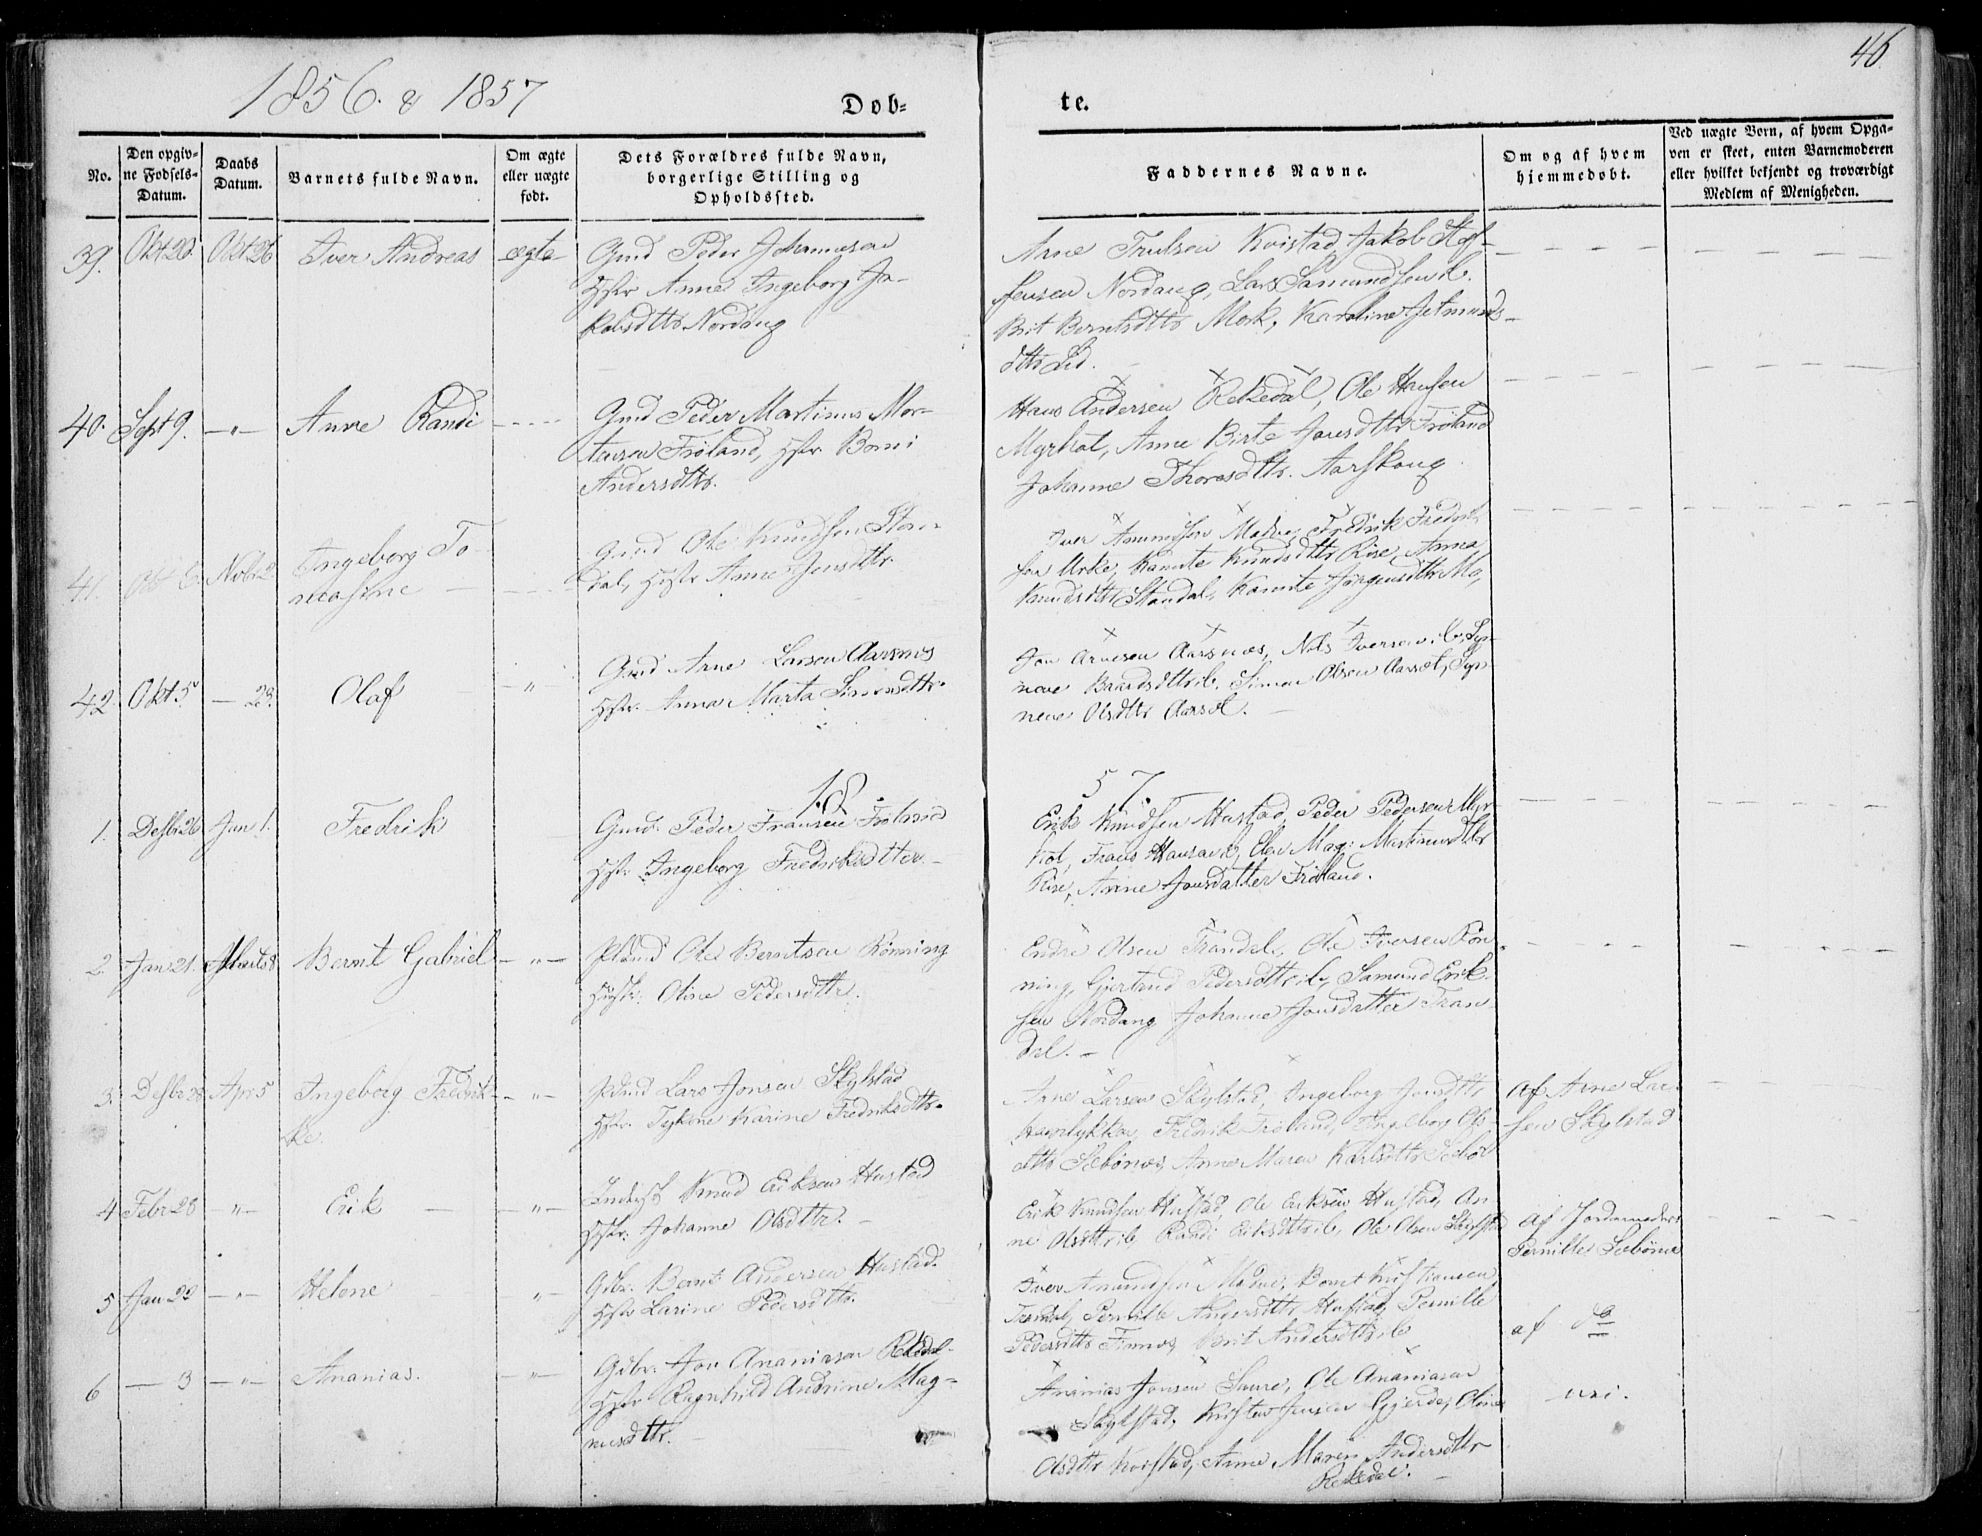 46
1856. & 1857
Dob=
te.
No.
Den opgiv=
ne Fodsels=
Datum.
Daabs
Datum.
Barnets fulde Navn.
Om ægte
eller uægte
født.
Dets Forældres fulde Navn,
borgerlige Stilling og
Opholdssted.
Faddernes Navne.
Om og af hvem
hjemmedobt.
Ved uægte Born, af hvem Opga=
ven er skeet, enten Barnemoderen
eller hvilket bekjendt og troværdigt
Medlem af Menigheden.
39. Okt 20. Okt 26 Iver Andreas ægte Gmd Peder Johannesen
Hstr Anne Ingeborg Ja-
kobsdttr Nordang
Arne Trulsen Kvistad, Jakob Stef-
fensen Nordang, Lars Samundsen ib.
Brit Berntsdttr Mork, Karoline Jetmunds-
dttr Lid.
40. Sept 9. -"- Anne Randi Gmd Peder Martinus Mor-
tensen Frøland, Hstr Borni
Andersdttr.
Hans Andersen Rekedal, Ole Hansen
Myrhol, Anne Birte Jonsdttr Frøland
Johanne Thoresdttr. Aarskoug.
41. Okt 6. Novbr 2 Ingeborg To-
masine
Gmd Ole Knudsen Stan-
dal, Hstr Anne Jensdttr.
Iver Amundsen Madve, Fredrik Fredrik-
sen Urke, Kanute Knudsdttr Rise, Anna
Knudsdttr Standal, Kanute Jørgensdttr Mo,
42. Okt 5 - 23. Olaf " Gmd Arne Larsen Aarsnes
Hstr. Anna Marta Simonsdttr.
Jon Arnesen Aarsnæs, Nils Iversen ib, Syn-
neve Baardsdttr ib. Simon Olsen Aarset, Syn-
neve Olsdttr Aarset.
18 57.
1. Desbr 26 Jan 1. Fredrik Gmd. Peder Fransen Frøland
Hstr. Ingeborg Fredriksdtter.
Erik Knudsen Hustad, Peder Pedersen Myr-
hol, Frans Hansen ib, Elen Mag: Martinusdtter
Rise, Anne Jonsdatter Frøland.
2. Jan 21. Marts 8 Bernt Gabriel -"- Plsmd Ole Berntsen Rönning
Hustr: Oline Pedersdttr.
Endre Olsen Trandal, Ole Iversen Rön-
ning, Gjertrud Pedersdttr ib, Samund Erik-
sen Nordang Johanne Jonsdatter Tran
dal.
3. Desbr 28 Apr: 5 Ingeborg Fredrik-
ke
-"- Lars Jonsen Skylstad
Hstr. Karine Fredriksdttr.
Arne Larsen Skylstad, Ingeborg Jonsdttr
Havnlykken, Fredrik Frøland, Ingeborg Ols-
dttr Sæbönes, Anne Maren Karlsdttr Sæbø
af Arne Lar-
sen Skylstad
4 Febr 28 -"- Erik -"- Inderst Knud Eriksen Hustad
Hstr: Johanne Olsdttr.
Erik Knudsen Hustad, Ole Eriksen Hustad, An-
ne Olsdttr ib, Randi Eriksdttr ib, Ole Olsen Skylstad
af Jordemoder
Pernille Sæbönes
5 Jan 22 -"- Helene -"- Gbr. Bernt Andersen Hustad.
Hstr Larine Pedersdttr.
Iver Amundsen Madve, Bernt Kristiansen
Trandal, Pernille Andersdttr Hustad, Pernille
Pedersdttr Finnes, Berit Andersdttr ib
af do
6 - 3 -"- Ananias. -"- Gbr. Jon Ananiasen Rekedal
Hstr Ragnhild Andrine Mag-
nusdttr.
Ananias Jonsen Saure, Ole Ananiasen
Skylstad, Kristen Jensen Gjerde, Oline
Olsdttr Kvistad, Anne Maren Andersdttr
Rekedal.
nei.